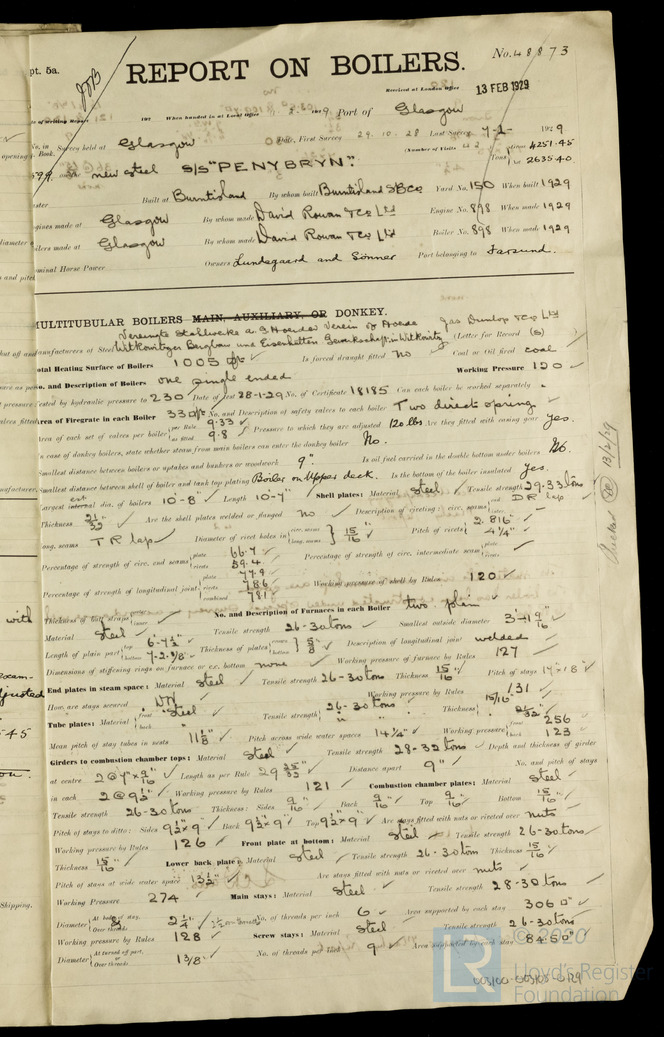 No. 48873
pt. 5a.
REPORT ON BOILERS.
Received at London Office 13 FEB 1929
of Writing Report 192 When handed in at Local Office 1929 Port of Glasgow
No. in Survey held at Glasgow Date, First Survey 29.10.28 Last Survey 7-2- 1929
Book. (Number of Visits
on the new steel S/S "PENYBRYN". Tons 4251.45
2635.40
Built at Burntisland By whom built Burntisland S B Co Yard No. 150 When built 1929
gines made at Glasgow By whom made David Rowan & Co Ltd Engine No. 898 When made 1929
ilers made at Glasgow By whom made David Rowan & Co Ltd Boiler No. 898 When made 1929
minal Horse Power Owners Lundegaard and Sönner Port belonging to Farsund.
MULTITUBULAR BOILERS MAIN, AUXILIARY, OR DONKEY.
Manufacturers of Steel (Letter for Record (S) )
Total Heating Surface of Boilers 1005 Is forced draught fitted No Coal or Oil fired coal
No. and Description of Boilers One single ended Working Pressure 120
Tested by hydraulic pressure to 230 Date of test 28-1-29 No. of Certificate 18185 Can each boiler be worked separately
Area of Firegrate in each Boiler 33 No. and Description of safety valves to each boiler Two direct spring
Area of each set of valves per boiler per Rule 9.33 as fitted 9.8 Pressure to which they are adjusted 120 lbs Are they fitted with easing gear Yes.
In case of donkey boilers, state whether steam from main boilers can enter the donkey boiler No.
Smallest distance between boilers or uptakes and bunkers or woodwork 9" Is oil fuel carried in the double bottom under boilers No.
Smallest distance between shell of boiler and tank top plating Boiler on Upper deck. Is the bottom of the boiler insulated Yes.
Largest ext dia. of boilers 10'-8" Length 10'-7" Shell plates: Material Steel Tensile strength 29-33 tons
Thickness 21/32" Are the shell plates welded or flanged no Description of riveting: circ. seams end DR lap
long. seams T R lap Diameter of rivet holes in circ. seams long. seams 15/16" Pitch of rivets 2.816" 4 1/4"
Percentage of strength of circ. end seams plate 66.7 rivets 59.4 Percentage of strength of circ. intermediate seam plate rivets
Percentage of strength of longitudinal joint plate 77.9 rivets 78.6 combined 78.1 Working pressure of shell by Rules 120
Thickness of butt straps No. and Description of Furnaces in each Boiler two plain
Material Steel Tensile strength 26-30 tons Smallest outside diameter 3'-1 9/16"
Length of plain part top 6'-7 1/2" bottom 7'-2 9/8" Thickness of plates crown bottom 5/8 Description of longitudinal joint welded
Dimensions of stiffening rings on furnace or c.c. bottom none Working pressure of furnace by Rules 127
End plates in steam space: Material Steel Tensile strength 26-30 tons Thickness 15/16" Pitch of stays 17" x 18"
How are stays secured DN Working pressure by Rules 131
Tube plates: Material front back Steel Tensile strength 26-30 tons Thickness 15/16" 21/32"
Mean pitch of stay tubes in nests 11 1/8" Pitch across wide water spaces 14 1/4" Working pressure front 256 back 123
Girders to combustion chamber tops: Material Steel Tensile strength 28-32 tons Depth and thickness of girder
at centre 2 @ 7" x 9/16" Length as per Rule 29 25/32" Distance apart 9" No. and pitch of stays
in each 2 @ 9 1/2" Working pressure by Rules 121 Combustion chamber plates: Material Steel
Tensile strength 26-30 tons Thickness: Sides 9/16" Back 9/16" Top 9/16" Bottom 15/16"
Pitch of stays to ditto: Sides 9 1/2" x 9" Back 9 1/2" x 9" Top 9 1/2" x 9" Are stays fitted with nuts or riveted over nuts
Working pressure by Rules 126 Front plate at bottom: Material Steel Tensile strength 26-30 tons
Thickness 15/16" Lower back plate: Material Steel Tensile strength 26-30 tons Thickness 15/16"
Pitch of stays at wide water space 13 1/2" Are stays fitted with nuts or riveted over nuts
Working Pressure 274 Main stays: Material Steel Tensile strength 28-30 tons
Diameter At body of stay, or Over threads 2 1/4" No. of threads per inch 6 Area supported by each stay 306 □"
Working pressure by Rules 128 Screw stays: Material Steel Tensile strength 26-30 tons
Diameter At turned off part, or Over threads 1 3/8" No. of threads per inch 9 Area supported by each stay 84.50"
with
Shipping.
LR
© 2020
Lloyd's Register
Foundation